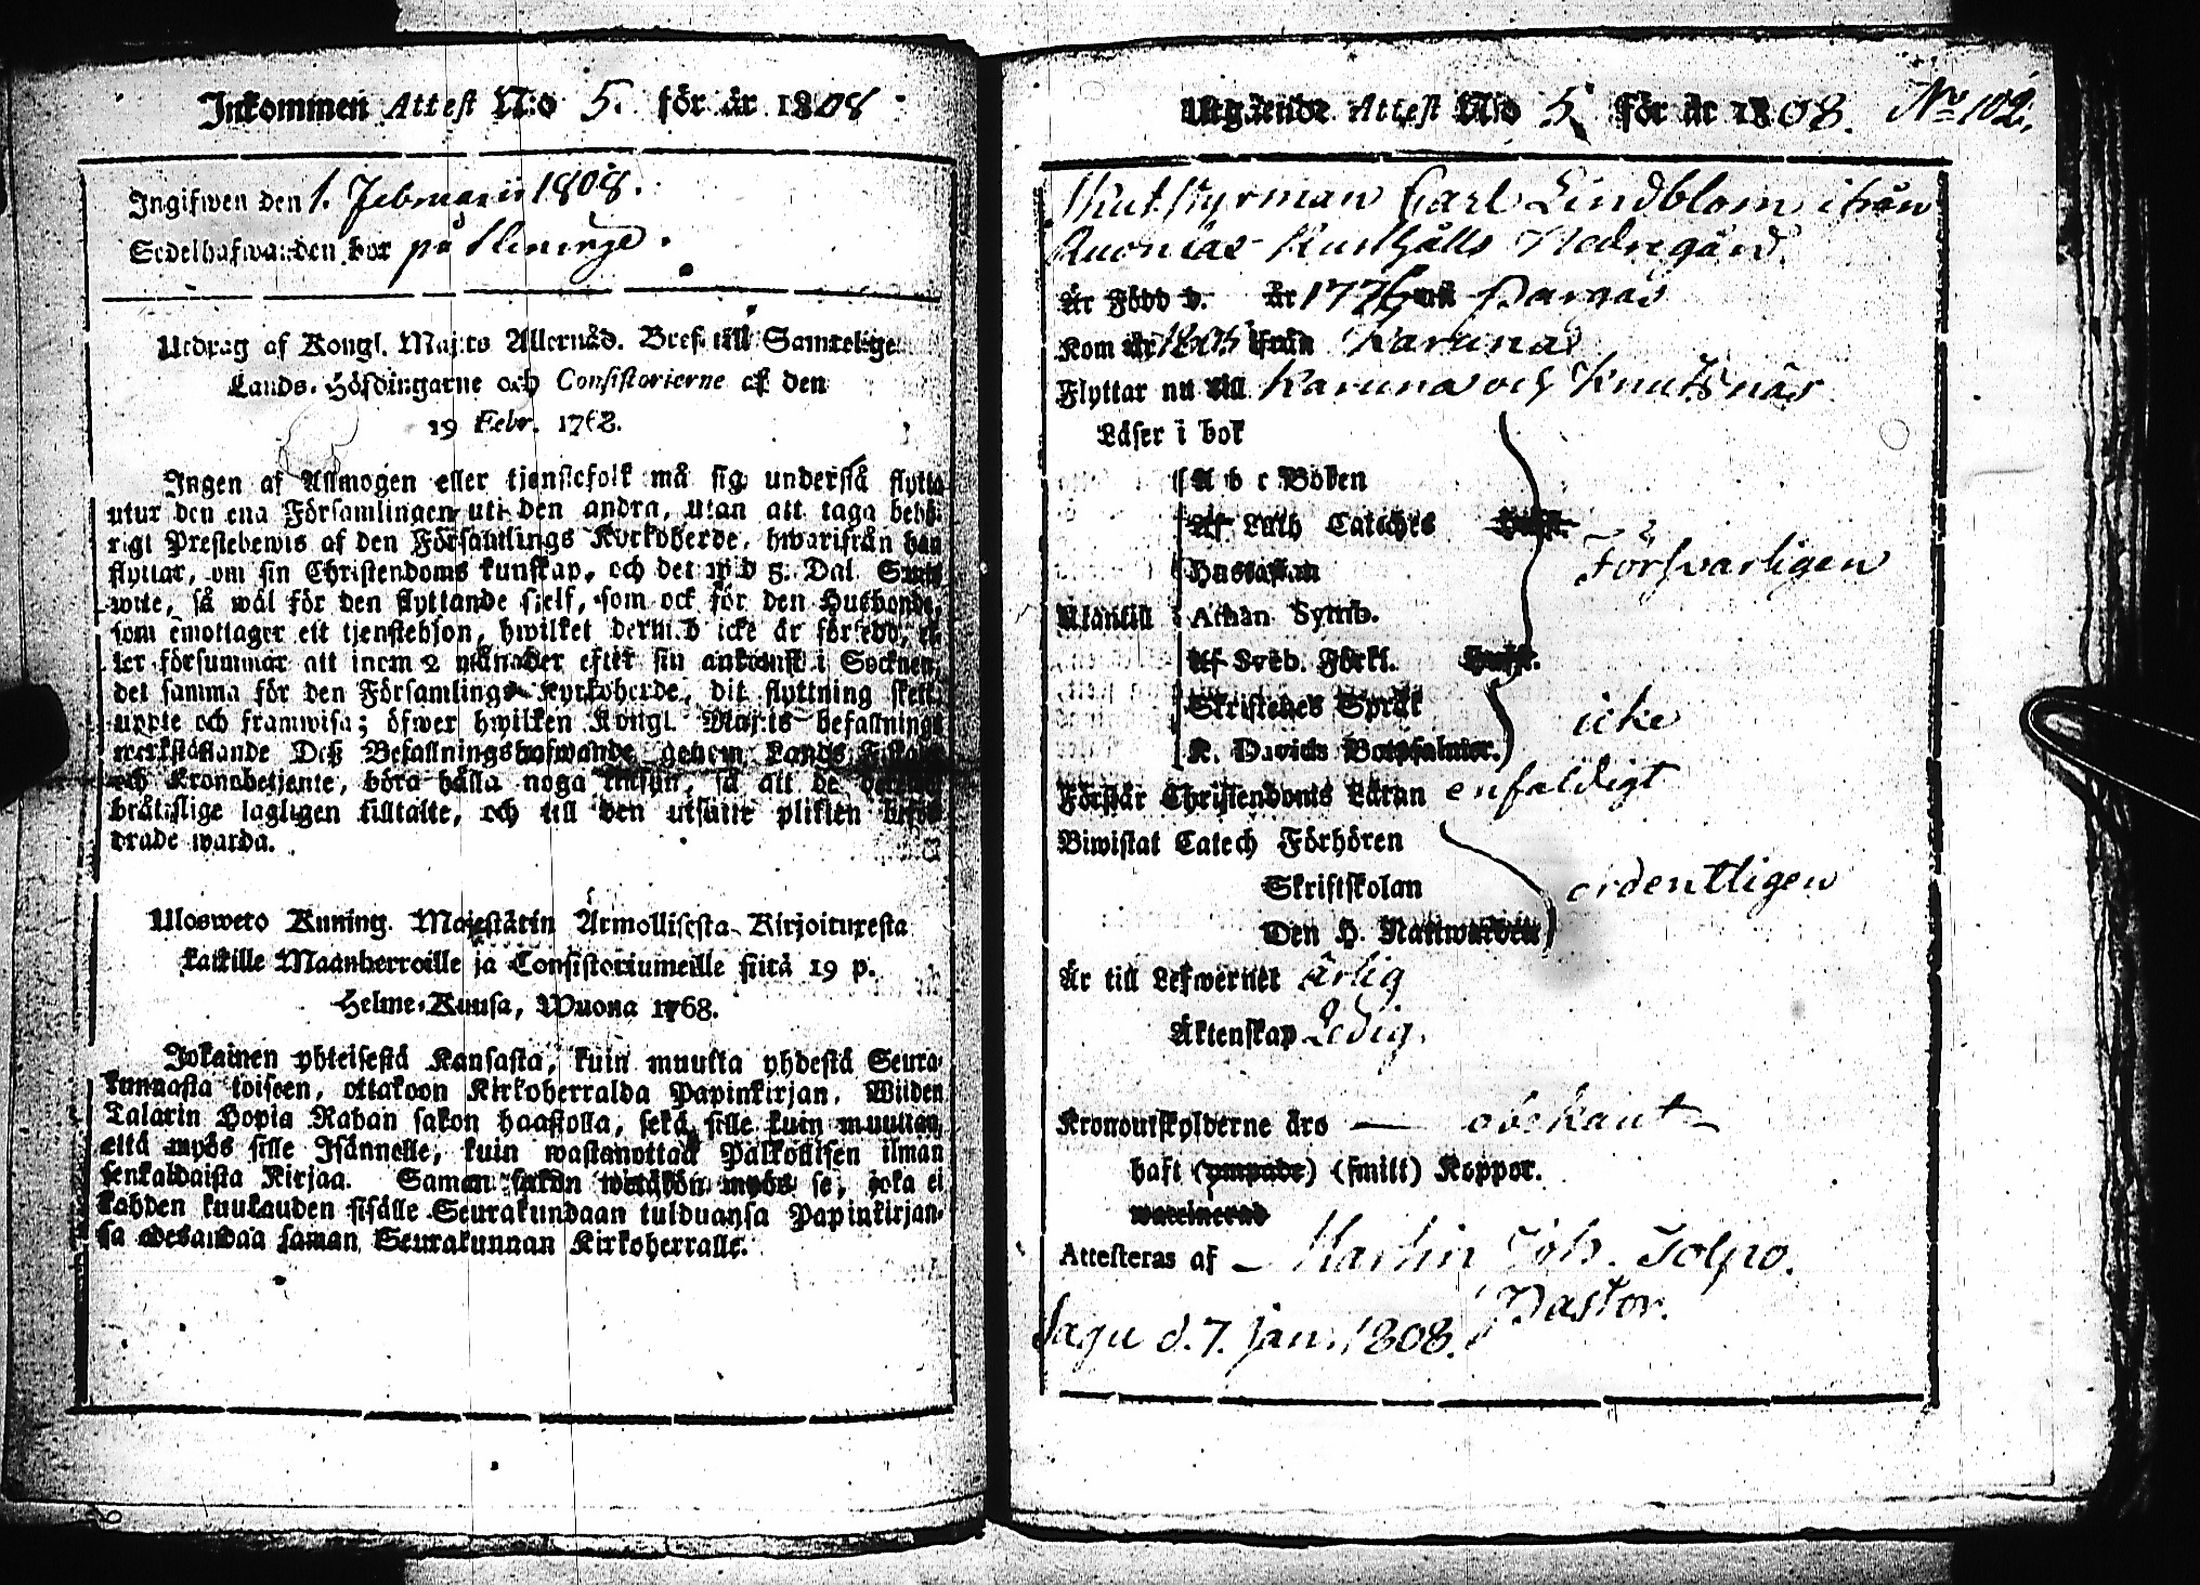 Inkommen Attest N:o 5. för år 1808
Ingifwen den 1. Februarii 1808.
Sedelhafwanden bor på
Utdrag af Kongl. Maj:ts Allernåd. Bref till Samtelige
Lands-Höfdingarne och Consistorierne af den
19 Febr. 1768.
Ingen af Allmogen eller tjenstefolk må sig understå flytta
utur den ena Församlingen uti den andra, utan att taga behö-
rigt Prestebewis af den Församlings Kyrkoherde, hwarifrån han
flyttar, om sin Christendoms kunskap, och det wid 5. Dal. S:mts
wite, så wäl för den flyttande sjelf, som ock för den Husbonde,
som emottager ett tjenstehjon, hwilket dermed icke är försedd, el-
ler försummar att inom 2 månader efter sin ankomst i Socknen,
det samma för den Församlings Kyrkoherde, dit flyttning skett,
uppte och framwisa; öfwer hwilken Kongl. Maj:ts befallnings
werkställande Deß Befallningshafwande genom Lands Fiskaler
och Kronobetjente, böra hålla noga inseende, så att de
bråtslige lagligen tilltalte, och till den utsatte plikten
drade warda.
Ulosweto Kuning. Majestätin Armollisesta Kirjoituxesta
kaikille Maanherroille ja Consistoriumeille siitä 19 p.
Helme-Kuusa, Wuona 1768.
Jokainen yhteisestä Kansasta, kuin muutta yhdestä Seura-
kunnasta toiseen, ottakoon Kirkoherralda Papinkirjan, Wiiden
Talarin Hopia Rahan sakon haastolla, sekä sille kuin muuttaa,
että myös sille Isännelle, kuin wastanottaa Palkollisen ilman
senkaldaista Kirjaa. Saman sakon wetäkön myös se, joka ei
kahden kuukauden sisälle Seurakundaan tulduansa Papinkirjan-
sa edesandaa saman Seurakunnan Kirkoherralle.
Utgående Attest N:o 5 för år 1808. No 102.
Skutstyrman Carl Lindblom ifrån
Nedregård.
Är Född d. år 1776 uti Pargas
Kom år 1805 från Karuna
Flyttar nu till Karuna och Knutsnäs
Läser i bok
A b c Boken
Af Luth Cateches
Försvarligen
Hustaflan
Utantill Athan Symb.
Af Sveb. Förkl.
Skriftenes Språk
icke
K. Davids Botpsalmer.
Förstår Christendoms Läran enfaldigt
Biwistat Catech Förhören
Skriftskolan ordentligen
Den H. Nattwarden
Är till Lefwernet Ärlig
Äktenskap Ledig.
Kronoutskylderne äro — obekant
haft (ympade) (smitt) Koppor.
waccinerad
Attesteras af Martin Joh. Tolpo.
Pastor.
Sagu d. 7. Jan. 1808.